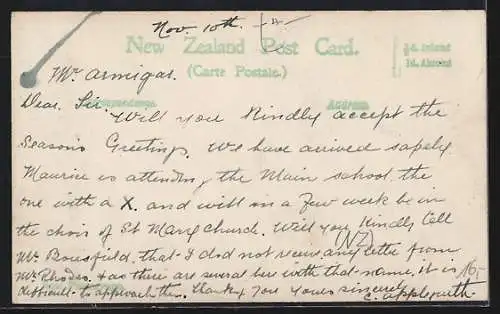 Nov. 10th.
New Zealand Post Card.
(Carte Postale.)
½d. Inland
1d. Abroad
Mr Armigar.
Correspondence. Address
Dear Sir.
Will you Kindly accept the
Seasons Greetings. We have arrived safely
Maurice is attending the Main school, the
one with a X. and will in a few week be in
the choir of St Marys church. Will you Kindly tell
(NZ)
Mr. Bousfield. that I did not receive any letter from
Mr Rhodes. & as there are several here with that name, it is
difficult to approach them. Thanking you yours sincerely
C. Applequith